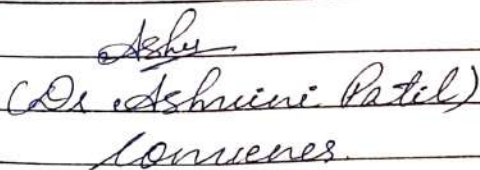 Ashu
(Dr. Ashwini Patil)
Convener